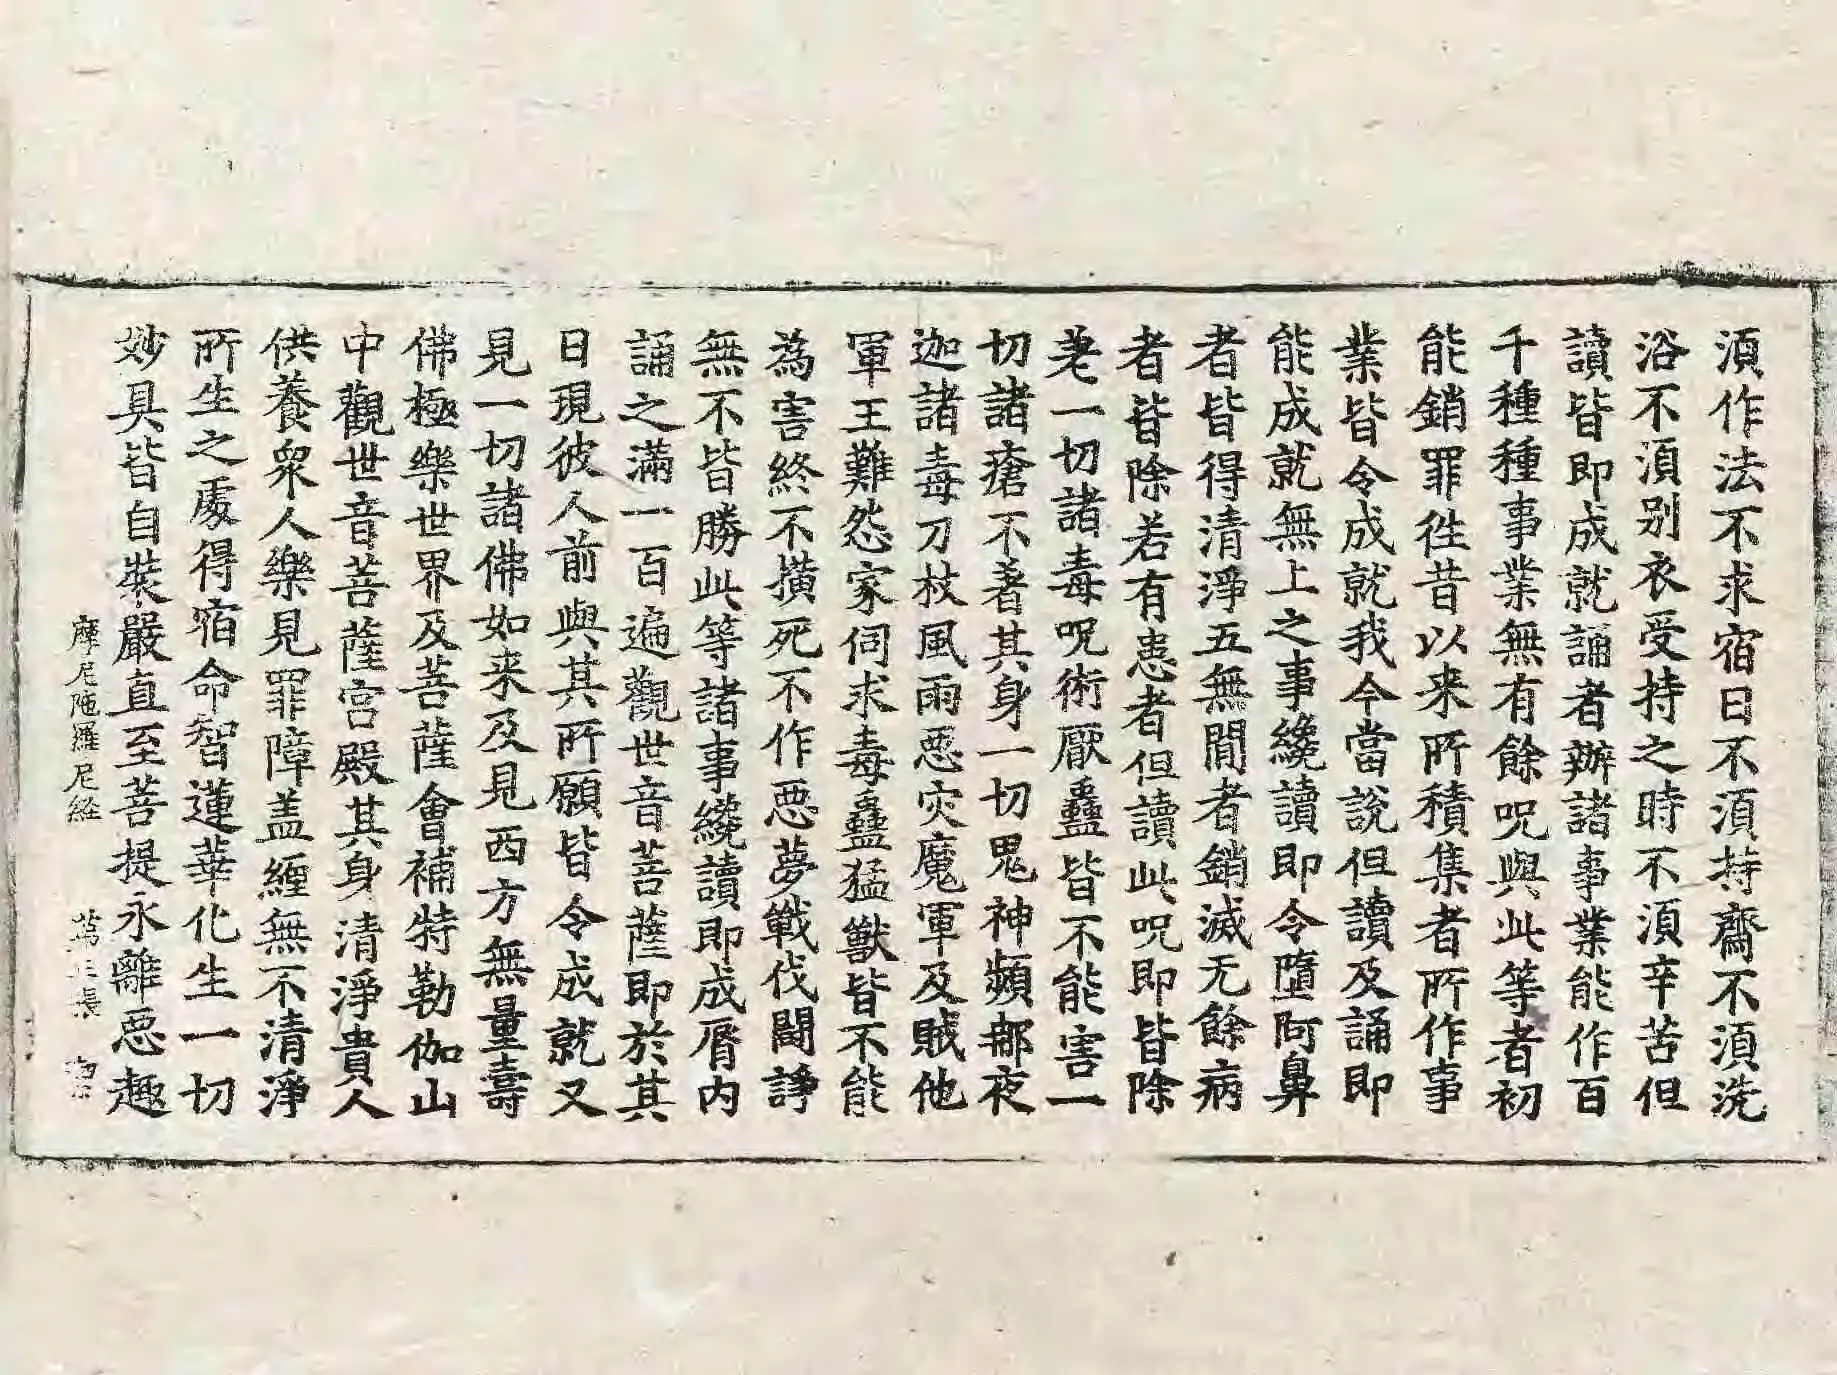 須作法不求宿日不須持齋不須洗
浴不須別衣受持之時不須辛苦但
讀皆即成就誦者辦諸事業能作百
千種種事業無有餘呪與此等者初
能銷罪徃昔以来所積集者所作事
業皆令成就我今當說但讀及誦即
能成就無上之事纔讀即令墮阿鼻
者皆得清淨五無間者銷滅无餘病
者皆除若有患者但讀此呪即皆除
差一切諸毒呪術厭蠱皆不能害一
切諸瘡不著其身一切鬼神頻那夜
迦諸毒刀杖風雨惡灾魔軍及賊他
軍王難怨家伺求毒蠱猛獸皆不能
為害終不撗死不作惡夢戰伐鬪諍
無不皆勝此等諸事纔讀即成脣内
誦之滿一百遍觀世音菩薩即於其
日現彼人前與其所願皆令成就又
見一切諸佛如来及見西方無量壽
佛極樂世界及菩薩會補特勒伽山
中觀世音菩薩宮殿其身清淨貴人
供養衆人樂見罪障盖纏無不清淨
所生之處得宿命智蓮華化生一切
妙具皆自裝嚴直至菩提永離惡趣
摩尼陁羅尼経